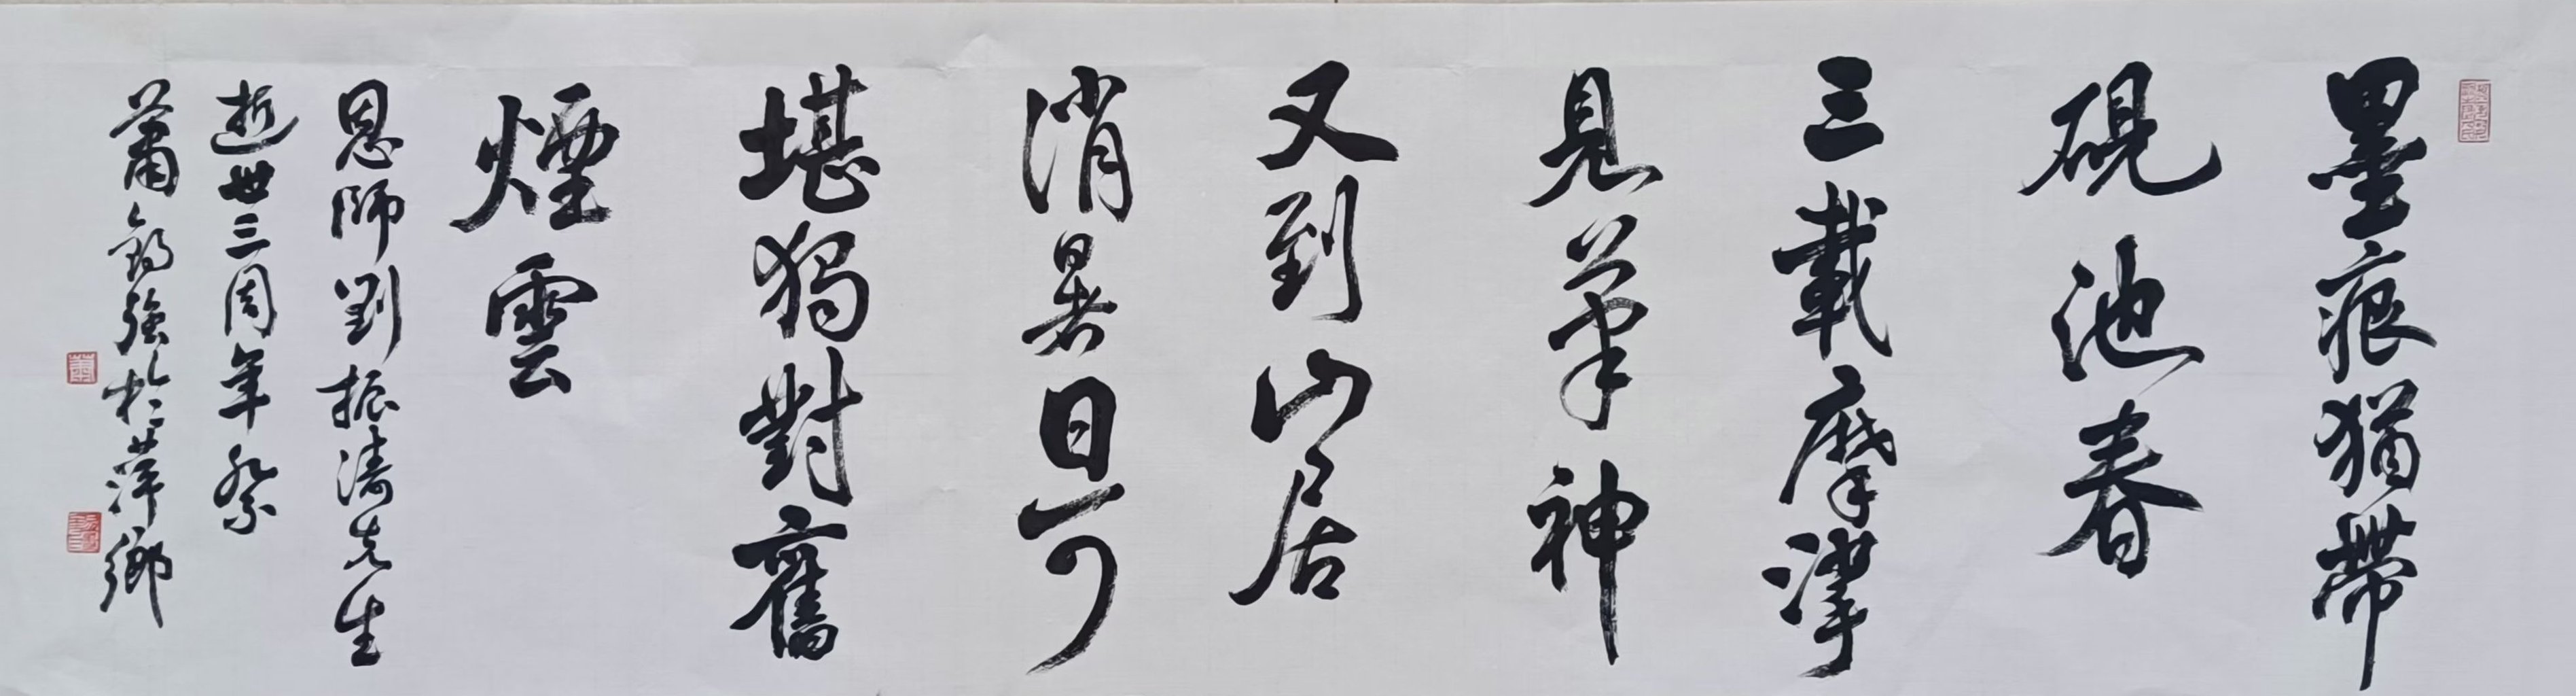 墨痕猶帶
硯池春
三載摩挲
見筆神
又到山居
消暑日可
堪獨對舊
煙雲
恩師劉振濤先生
逝世三周年祭
蕭 強於萍鄉